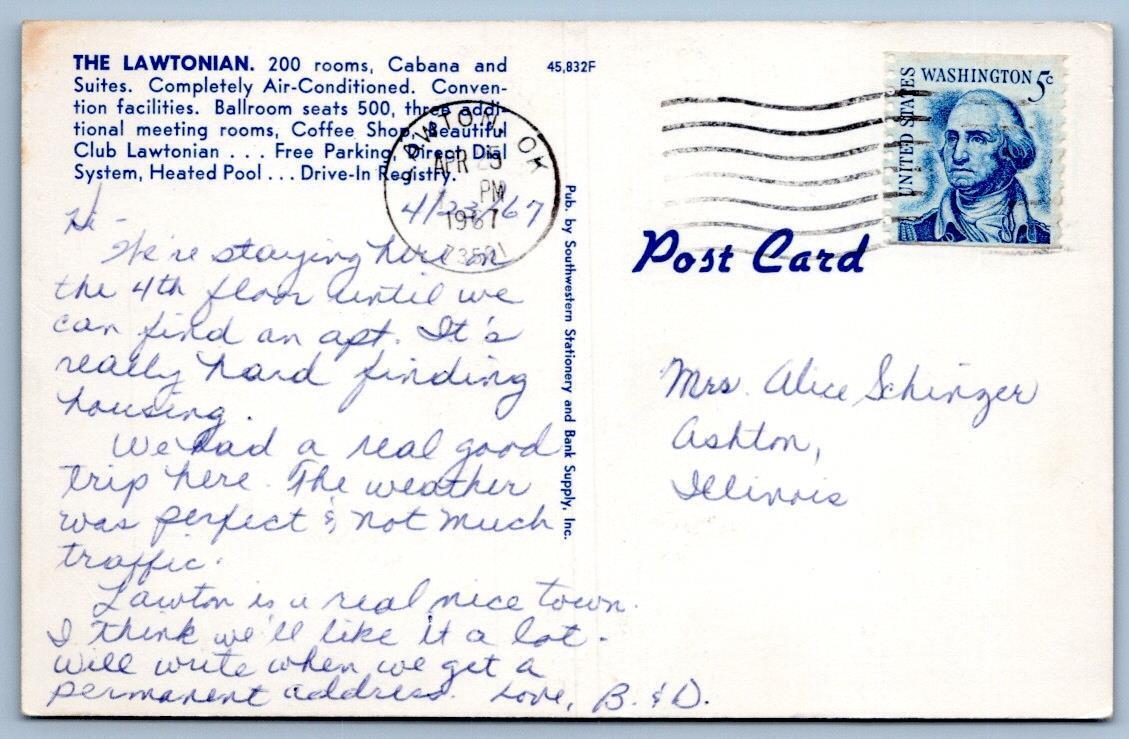 THE LAWTONIAN. 200 rooms, Cabana and
Suites. Completely Air-Conditioned. Conven-
tion facilities. Ballroom seats 500, three addi-
tional meeting rooms, Coffee Shop, Beautiful
Club Lawtonian . . . Free Parking, Direct Dial
System, Heated Pool . . . Drive-In Registry.
45,832F
LAWTON, OK
APR 25
PM
1967
73501
UNITED STATES
WASHINGTON 5c
Post Card
Pub. by Southwestern Stationery and Bank Supply, Inc.
4/23/67
Hi -
We're staying here on
the 4th floor until we
can find an apt. It's
really hard finding
housing.
We had a real good
trip here. The weather
was perfect & not much
traffic.
Lawton is a real nice town.
I think we'll like it a lot.
Will write when we get a
permanent address. Love, B. & D.
Mrs. Alice Schinzer
Ashton,
Illinois